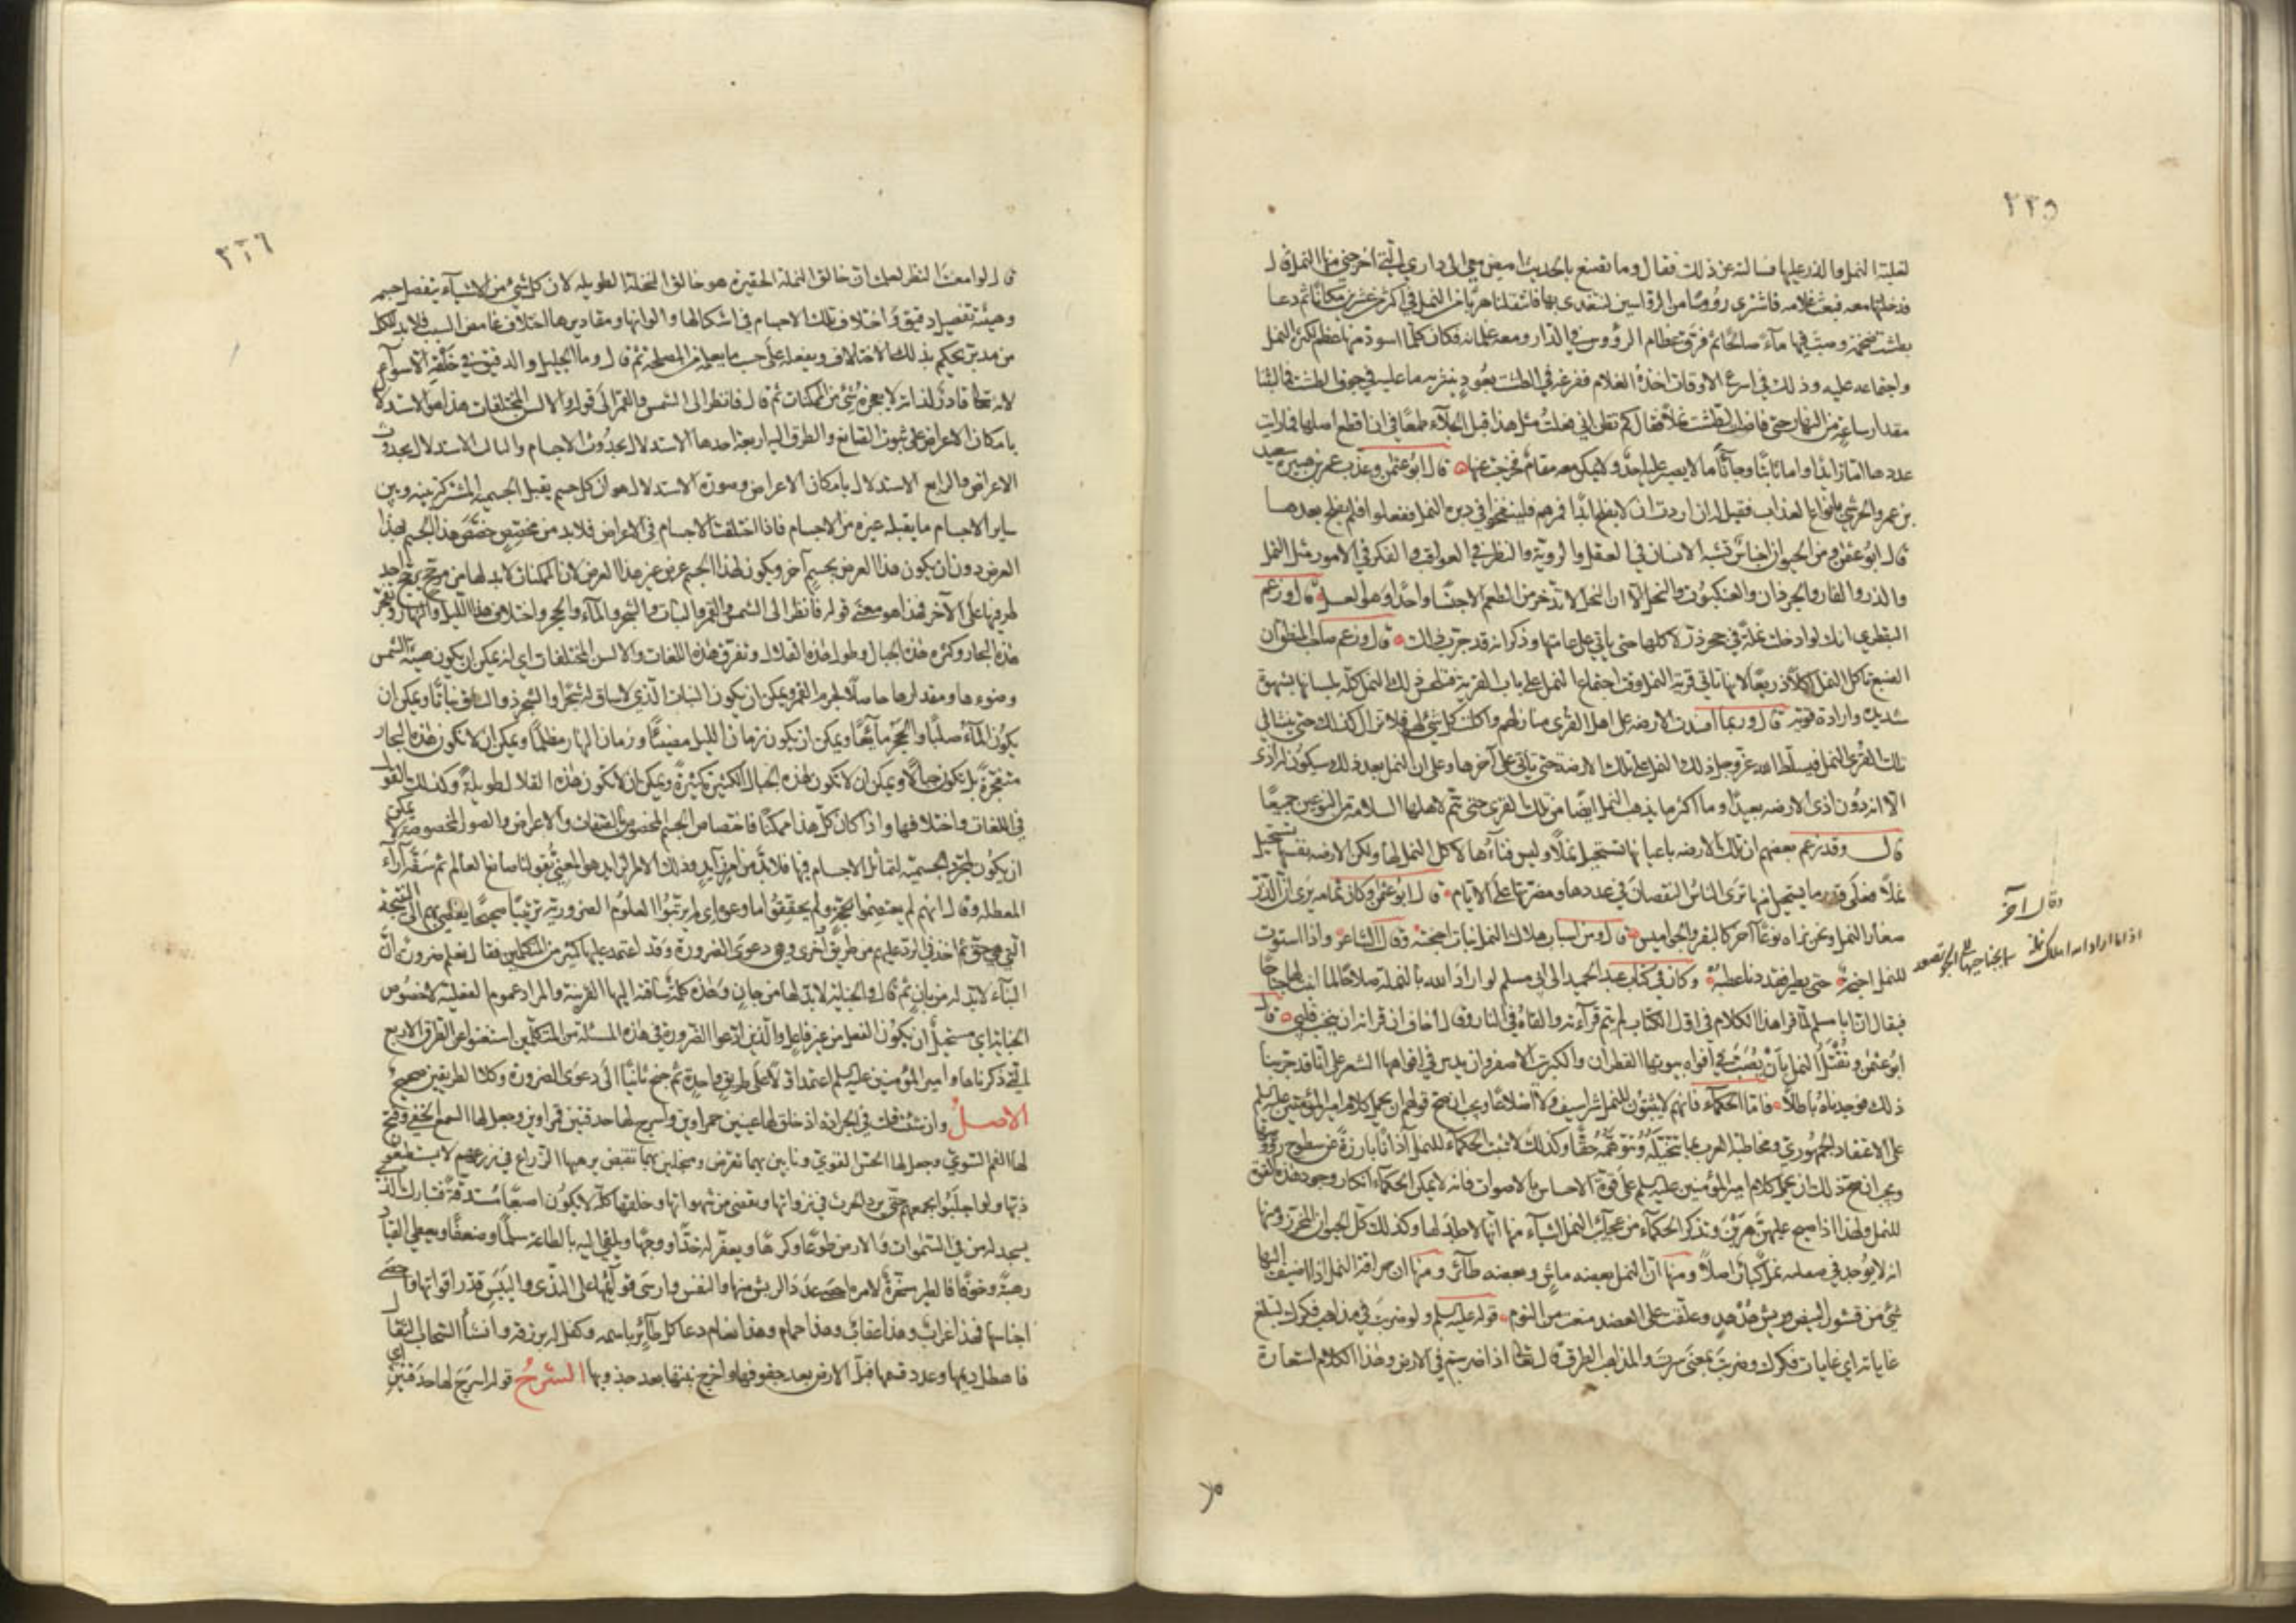 ٢٢٥
لغلبة النمل والذر عليها فسالته عن ذلك فقال وما تصنع بالحديث امض معي الى داري التي اخرجني منها النمل قال
فدخلتها معه فبعث غلامه فاشترى رؤوسا من الرواسين لنتغدى بها فانتقلنا هربا من النمل في اكثر من عشرين مكانا ثم دعا
بطشت ضخمة وصب فيها ماء صالحا ثم فرق عظام الرؤوس في الدار ومعه غلمانه فكان كلما اسود منها عظم لكثرة النمل
واجتماعه عليه وذلك في اسرع الاوقات اخذه الغلام ففرغه في الطشت بعود ينثر به ما عليه في جوف الطشت فما لبثنا
مقدار ساعة من النهار حتى فاض الطشت نملا فقال كم تظن اني فعلت مثل هذا قبل الجلاء طمعا في ان اقطع اصلها فلما رايت
عددها اما زايدا واما ثابتا وجاءنا ما لا يصبر عليه احد ولا يمكن معه مقام خرجت عنها قال ابو عثمن وعذب عمر بن هبيرة سعيد
بن عمرو الحرشي بانواع العذاب فقيل له ان اردت ان لا يفلح ابدا فمرهم فلينفخوا في دبره النمل ففعلوا فلم يفلح بعدها
قال ابو عثمن ومن الحيوان اجناس تشبه الانسان في العقل والروية والنظر في العواقب والفكر في الامور مثل النمل
والذر والفار والجرذان والعنكبوت والنحل الا ان النحل لا يدخر من الطعم الا جنسا واحدا وهو العسل قال وزعم
البقطري انك لو ادخلت نملة في جحر ذر لاكلتها حتى ياتي على عامتها وذكر انه قد جرب ذلك قال وزعم صاحب المنطق ان
الضبع تاكل النمل اكلا ذريعا لانها تاتي قرية النمل وقت اجتماع النمل على باب القرية فتلحس ذلك النمل كله بلسانها بشهوة
شديدة وارادة قوية قال وربما افسدت الارضة على اهل القرى منازلهم واكلت كل شيء لهم فلا تزال كذلك حتى ينشا في
تلك القرى النمل فيسلط الله عز وجل ذلك النمل على تلك الارضة حتى تاتي على آخرها وعلى ان النمل بعد ذلك سيكون له اذى
الا انه دون اذى الارضة بعيدا وما اكثر ما يذهب النمل ايضا من تلك القرى حتى تتم لاهلها السلامة من النوعين جميعا
قال وقد زعم بعضهم ان تلك الارضة باعيانها تستحيل نملا وليس فناؤها لاكل النمل لها ولكن الارضة نفسها تستحيل
نملا فعلى قدر ما يستحيل منها ترى الناس النقصان في عددها ومضرتها على الايام قال ابو عثمن وكان ثمامة يرى ان الذر
صغار النمل ونحن نراه نوعا آخر كالبقر والجواميس قال ومن اسباب هلاك النمل نبات اجنحته وقال الشاعر واذا استوت
للنمل اجنحة حتى يطير فقد دنا عطبه وكان في كتاب عبد الحميد الى ابي مسلم لو اراد الله بالنملة صلاحا لما انبت لها جناحا
وقال آخر
اذا ما اراد الله اهلاك نملة سما بجناحيها الى الجو تصعد
فيقال ان ابا مسلم لما قرا هذا الكلام في اول الكتاب لم يتم قرآءته والقاه في النار وقال اخاف ان قراته ان ينخب قلبي قال
ابو عثمن ونقتل النمل بان يصب في افواه بيوتها القطران والكبريت الاصفر وان يدس في افواهها الشعر على انا قد جربنا
ذلك فوجدناه باطلا فاما الحكماء فانهم لا يثبتون للنمل شراسيف ولا اضلاعا ويجب ان صح قولهم ان يحمل كلام امير المؤمنين عليه السلم
على الاعتقاد الجمهوري ومخاطبة العرب بما تتخيله وتتوهمه حقا وكذلك لا تثبت الحكماء للنمل آذانا بارزة عن سطوح رؤوسها
ويجب ان صح ذلك ان يحمل كلام امير المؤمنين عليه السلم على قوة الاحساس بالاصوات فانه لا يمكن الحكماء انكار وجود هذه القوة
للنمل ولهذا اذا صيح عليهن هربن وتذكر الحكماء من عجايب النمل اشياء منها انها لا جلد لها وكذلك كل الحيوان المحرز ومنها
انه لا يوجد في صقلية نمل كبار اصلا ومنها ان النمل بعضه ماش وبعضه طائر ومنها ان حراقة النمل اذا اضيف اليها
شيء من قشور البيض وريش هدهد وعلقت على العضد منعت من النوم قوله عليه السلم ولو ضربت في مذاهب فكرك لتبلغ
غاياته اي غايات فكرك وضربت بمعنى سرت والمذاهب الطرق قال تعالى اذا ضربتم في الارض وهذا الكلام استعارة
٢٢٦
قال لو امعنت النظر لعلمت ان خالق النملة الحقيرة هو خالق النخلة الطويلة لان كل شيء من الاشياء تفصيل جسمه
وهيئته تفصيل دقيق واختلاف تلك الاجسام في اشكالها والوانها ومقاديرها اختلاف غامض السبب فلا بد للكل
من مدبر يحكم بذلك الاختلاف ويفعله على حسب ما يعلمه من المصلحة ثم قال وما الجليل والدقيق في خلقه الا سواء
لانه تعالى قادر لذاته لا يعجزه شيء من الممكنات ثم قال فانظر الى الشمس والقمر الى قوله والالسن المختلفات هذا هو الاستدلال
بامكان الاعراض على ثبوت الصانع والطرق اليه اربعة احدها الاستدلال بحدوث الاجسام والثاني الاستدلال بحدوث
الاعراض والرابع الاستدلال بامكان الاعراض وصورة الاستدلال هو ان كل جسم يقبل الجسمية المشتركة بينه وبين
ساير الاجسام ما يقبله غيره من الاجسام فاذا اختلفت الاجسام في الاعراض فلا بد من مخصص خصص هذا الجسم بهذا
العرض دون ان يكون هذا العرض بجسم آخر ويكون لهذا الجسم عرض غير هذا العرض لان الممكنات لا بد لها من مرجح يرجح احد
طرفيها على الآخر فهذا هو معنى قوله فانظر الى الشمس والقمر والنبات والشجر والماء والحجر واختلاف هذا الليل والنهار وتفجر
هذه البحار وكثرة هذه الجبال وطول هذه القلال وتفرق هذه اللغات والالسن المختلفات اي انه يمكن ان يكون هيئة الشمس
وضوءها ومقدارها حاصلا لجرم القمر ويمكن ان يكون النبات الذي لا ساق له شجرا والشجر ذو الساق نباتا ويمكن ان
يكون الماء صلبا والحجر مائعا ويمكن ان يكون زمان الليل مضيئا وزمان النهار مظلما ويمكن ان لا تكون هذه البحار
متفجرة بل تكون جبالا ويمكن ان لا تكون هذه الجبال الكثيرة كثيرة ويمكن ان لا تكون هذه القلال طويلة وكذلك القول
في اللغات واختلافها واذا كان كل هذا ممكنا فاختصاص الجسم المخصوص بالصفات والاعراض والصور المخصوصة لا يمكن
ان يكون لمجرد الجسمية لتماثل الاجسام فيها فلا بد من امر زايد وذلك الامر الزايد هو المعني بقولنا صانع العالم ثم سفه آراء
المعطلة وقال انهم لم يعتصموا بحجة ولم يحققوا ما وعوا اي لم يرتبوا العلوم الضرورية ترتيبا صحيحا يفضي بهم الى النتيجة
التي هي حق ثم اخذ في الرد عليهم من طريق اخرى وهي دعوى الضرورة وقد اعتمد عليها كثير من المتكلمين فقال نعلم ضرورة ان
البناء لا بد له من بان ثم قال والجناية لا بد لها من جان وهذه كلمة ساقته اليها القرينة والمراد عموم الفعلية لا خصوص
الجناية اي مستحيل ان يكون الفعل من غير فاعل والذين ادعوا الضرورة في هذه المسئلة من المتكلمين استغنوا عن الطرق الاربع
التي ذكرناها وامير المؤمنين عليه السلم اعتمد اولا على طريق واحدة ثم جنح ثانيا الى دعوى الضرورة وكلا الطريقين صحيح
الاصل وان شئت قلت في الجرادة اذ خلق لها عينين حمراوين واسرج لها حدقتين قمراوين وجعل لها السمع الخفي وفتح
لها الفم السوي وجعل لها الحس القوي ونابين بهما تقرض ومنجلين بهما تقبض يرهبها الزراع في زرعهم لا يستطيعون
ذبها ولو اجلبوا بجمعهم حتى ترد الحرث في نزواتها وتقضي منه شهواتها وخلقها كله لا يكون اصبعا مستدقة فتبارك الذي
يسجد له من في السموات والارض طوعا وكرها ويعفر له خدا ووجها ويلقي اليه بالطاعة سلما وضعفا ويعطي القياد
رهبة وخوفا فالطير مسخرة لامره احصى عدد الريش منها والنفس وارسى قوائمها على الندى واليبس قدر اقواتها واحصى
اجناسها فهذا غراب وهذا عقاب وهذا حمام وهذا نعام دعا كل طائر باسمه وكفل له برزقه وانشا السحاب الثقال
فاهطل ديمها وعدد قسمها فبل الارض بعد جفوفها واخرج نبتها بعد جدوبها الشرح قوله اسرج لها حدقتين اي